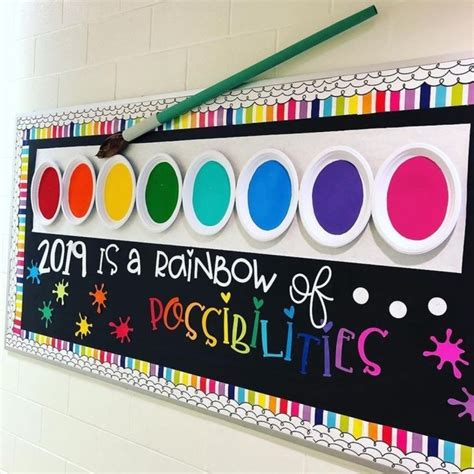 2019 is a Rainbow of...
POSSIBILITIES